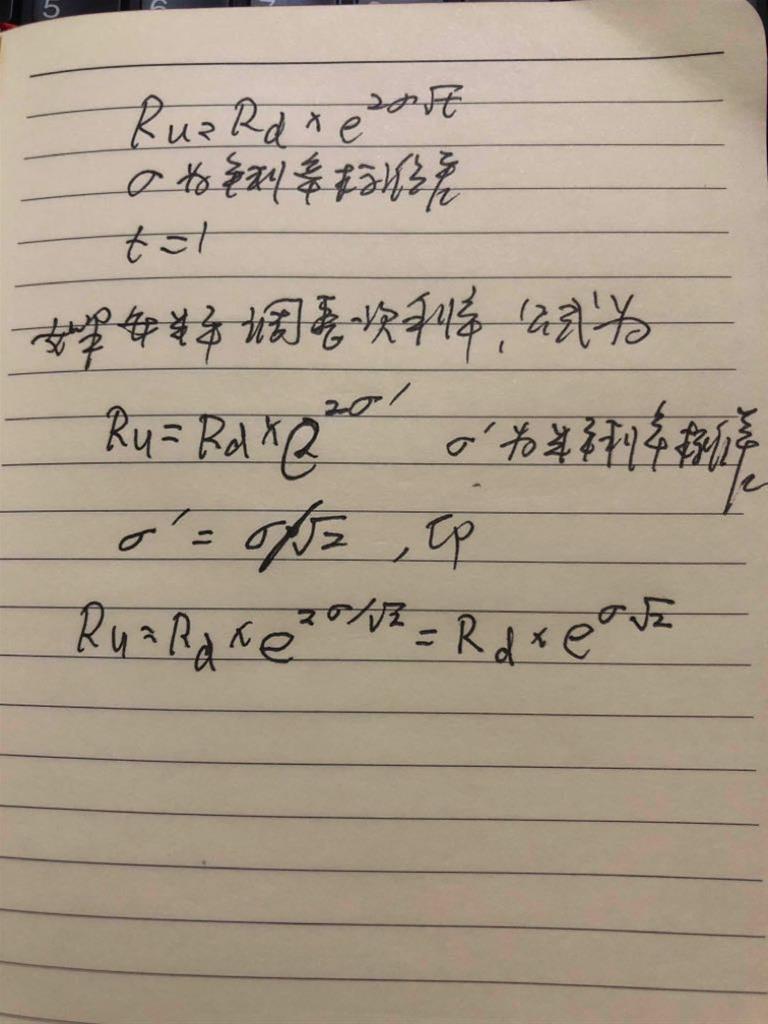 5 6 7
Ru = Rd × e^{2σ√t}
σ为年利率标准差
t=1
如果每半年调整一次利率,公式为
Ru = Rd × e^{2σ'} σ'为半年利率标准差
σ' = σ/√2 , 即
Ru = Rd × e^{2σ/√2} = Rd × e^{σ√2}